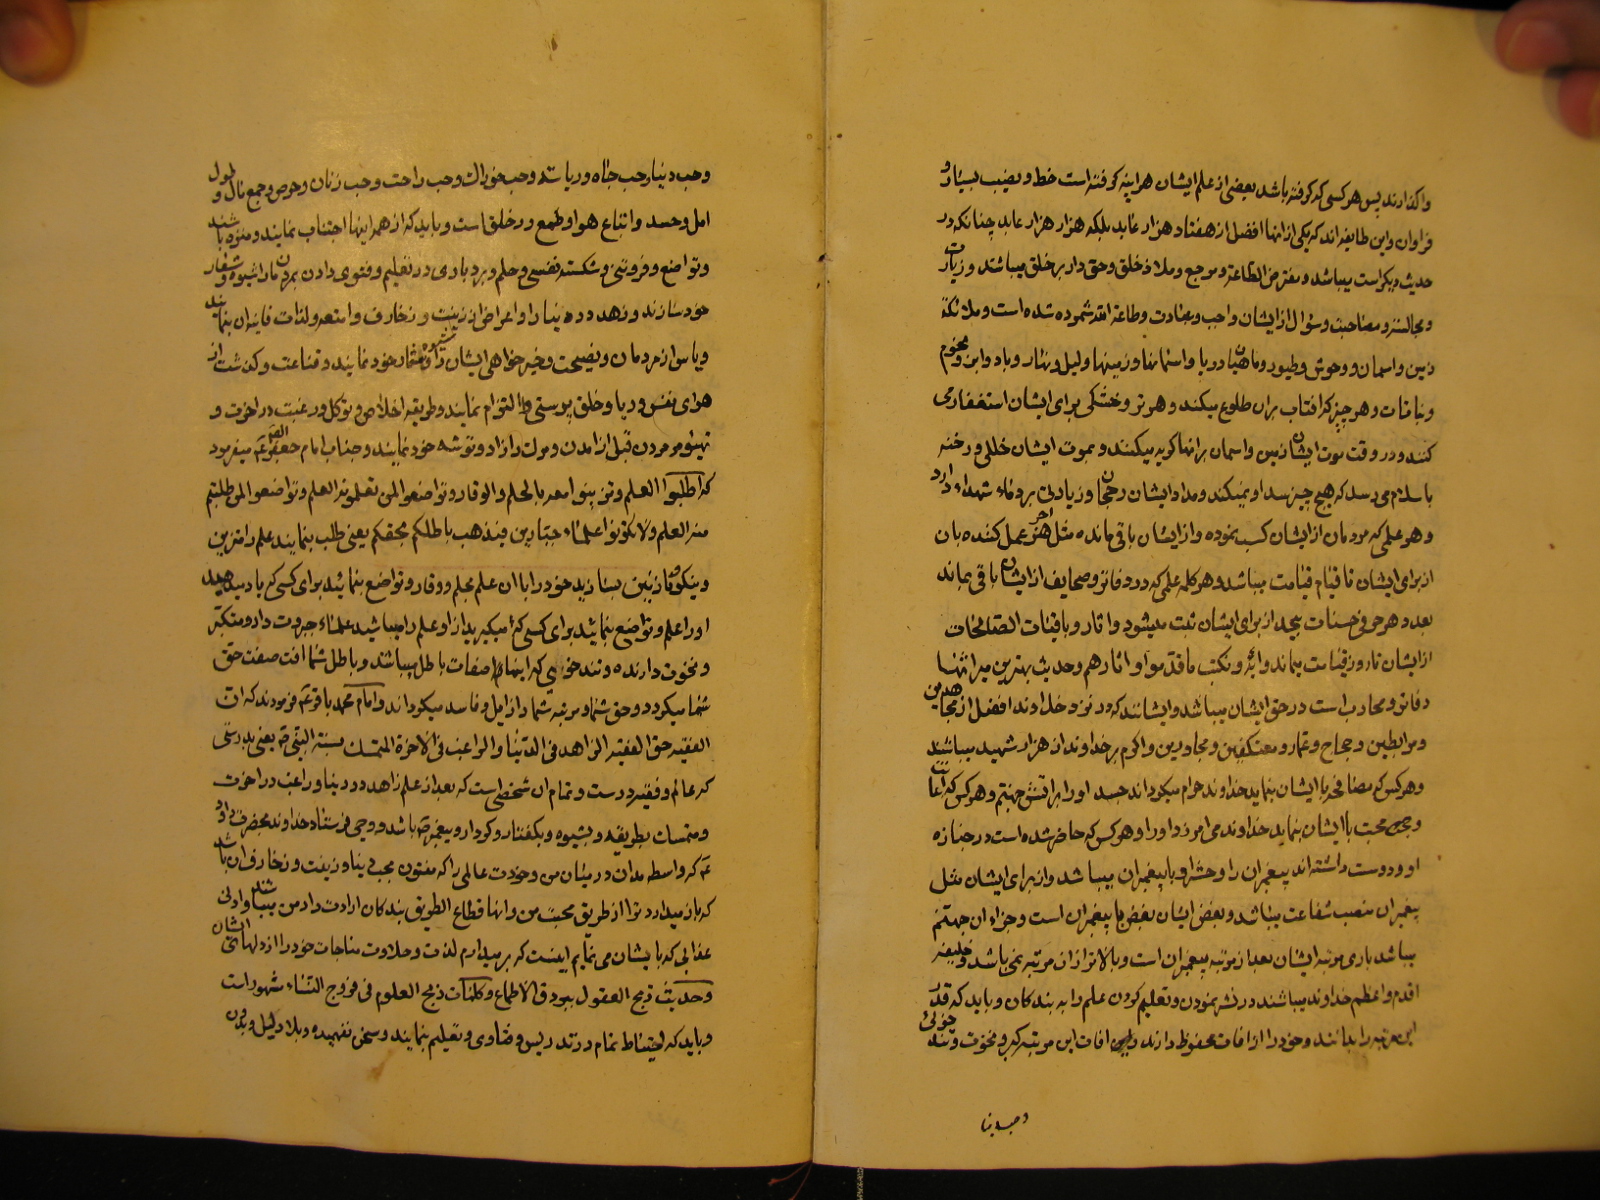 واکذارند پس هر کسی که کوفته باشد بعضی از علم ایشان هراینه کوفته است حظ و نصیب بسیار و
فراوان و این طایفه اند که یکی از انها افضل از هفتاد هزار عابد بلکه هزار هزار عابد چنانکه در
حدیث دیکر است میباشد و مفترض الطاعة و مرجع و ملاذ خلق و حق دار بر خلق میباشند و زیارت
و مجالست و مصاحبت و سؤال از ایشان واجب و عبادت و طاعة الله شمرده شده است و ملائکة
زمین و اسمان و وحوش و طیور و ماهیان دریا و اسمانها و زمینها و لیل و نهار و باد و ابر و نجوم
و نباتات و هر چیز که افتاب بران طلوع میکند و هر تر و خشکی برای ایشان استغفار می
کنند و در وقت موت ایشان زمین و اسمان برانها کریه میکنند و بموت ایشان خللی و رخنه
باسلام می رسد که هیچ چیز سد او نمیکند و مداد ایشان رجحان و زیادتی بر دماء شهداء دارد
و هر علمی که مردمان از ایشان کسب نموده و از ایشان باقی مانده مثل اجر هر عمل کننده بان
از برای ایشان تا قیام قیامت میباشد و هر کلمه علمی که در دفاتر و صحایف از ایشان باقی بماند
بعدد هر حرفی حسنات بیحد از برای ایشان ثبت میشود و اثار و باقیات الصالحات
از ایشان تا روز قیامت بماند و ایهٔ و نکتب ما قدموا و اثارهم و حدیث بهترین میراثها
دفاتر و محابر است در حق ایشان میباشد و ایشانند که در نزد خداوند افضل از مجاهدین
و مرابطین و حجاج و عمار و معتکفین و مجاورین و اکرم بر خداوند از هزار شهید میباشند
و هر کس که مصافحه با ایشان بنماید خداوند حرام میکرداند جسد او را بر اتش جهنم و هر کس که اعانت
و محبت با ایشان بنماید خداوند می امرزد او را و هر کس که حاضر شده است در جنازه
او و دوست داشته اند پیغمبران را و حشر او با پیغمبران میباشد و از برای ایشان مثل
پیغمبران منصب شفاعت میباشد و بغض ایشان بغض با پیغمبران است و جزاء ان جهنم
میباشد باری مرتبه ایشان بعد از مرتبه پیغمبران است و بالاتر از ان مرتبه نمی باشد و خلیفه
اقدم و اعظم خداوند میباشند در نشر نمودن و تعلیم کردن علم را به بندکان و باید که قدر
این مرتبه را بدانند و خود را از افات محفوظ دارند و افات این مرتبه کبر و نخوت و تند خوئی
و حب دنیا
و حب دنیا و حب جاه و ریاست و حب خوراک و حب راحت و حب زنان و حرص و جمع مال و طول
امل و حسد و اتباع هوا و طمع در خلق است و باید که از همه اینها اجتناب نمایند و منزه باشند
و تواضع و فروتنی و شکسته نفسی و حلم و بردباری در تعلیم و فتوی دادن بمردمان را شیوه و شعار
خود سازند و زهد در دنیا را و اعراض از زینت و زخارف و امتعه و لذات فانیه ان بنمایند
و یاس از مردمان و نصیحت و خیر خواهی ایشان را شیوه و شعار خود نمایند و قناعت و کذشت از
هوای نفس و ریا و خلق پرستی را التزام نمایند و طریقه اخلاص و توکل و رغبت در اخرت و
تهیئو مردن قبل از امدن و مرک را زاد و توشه خود نمایند و جناب امام جعفر الصادق ع میفرمود
که اطلبوا العلم و تزینوا معه بالحلم و الوقار و تواضعوا لمن تعلمونه العلم و تواضعوا لمن طلبتم
منه العلم و لا تکونوا علماء جبارین فیذهب باطلکم بحقکم یعنی طلب بنمایند علم را و تزیین
و نیکو و زینت بسازید خود را با ان علم بحلم و وقار و تواضع بنمائید برای کسی که یاد میدهید
او را علم و تواضع بنمائید برای کسی که میکیرید از او علم را و مباشید علماء جبروت دار و متکبر
و نخوت دارنده و تند خویی که اینها صفات باطل میباشد و باطل شما افت صفت حق
شما میکردد و حق شما و مرتبه شما را زایل و فاسد میکرداند و امام محمد باقر ع فرمودند که ان
الفقیه حق الفقیه الزاهد فی الدنیا و الراغب فی الاخرة المتمسک بسنة النبی ص یعنی بدرستی
که عالم و فقیه درست و تمام ان شخصی است که بعد از علم زاهد در دنیا و راغب در اخرت
و متمسک بطریقه و شیوه و بکفتار و کردار پیغمبر ص باشد و وحی فرستاد خداوند بحضرت داود
ع که واسطه مدان در میان من و خودت عالمی را که مفتون بحب دنیا و زینت و زخارف ان باشد
که باز میدارد ترا از طریق محبت من و انها قطاع الطریق بندکان ارادت دار من میباشند و ادنی
عذابی که با یشان می نمایم اینست که بر میدارم لذت و حلاوت مناجات خود را از دلهای ایشان
و حدیث ذبح العقول ببروق الاطماع و کلمات ذبح العلوم فی فروج النساء مشهور است
و باید که احتیاط تمام در تدریس و فتاوی و تعلیم بنمایند و سخن نفهمیده و بلا دلیل و بدون